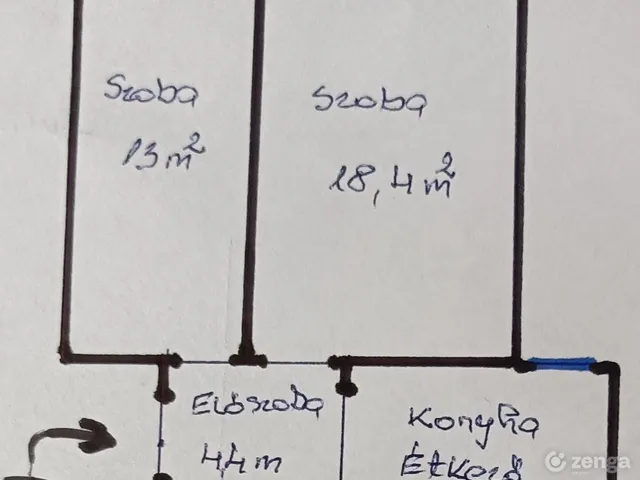 Szoba
13 m²
Szoba
18,4 m²
Előszoba
4,4 m
Konyha
Étkező
zenga